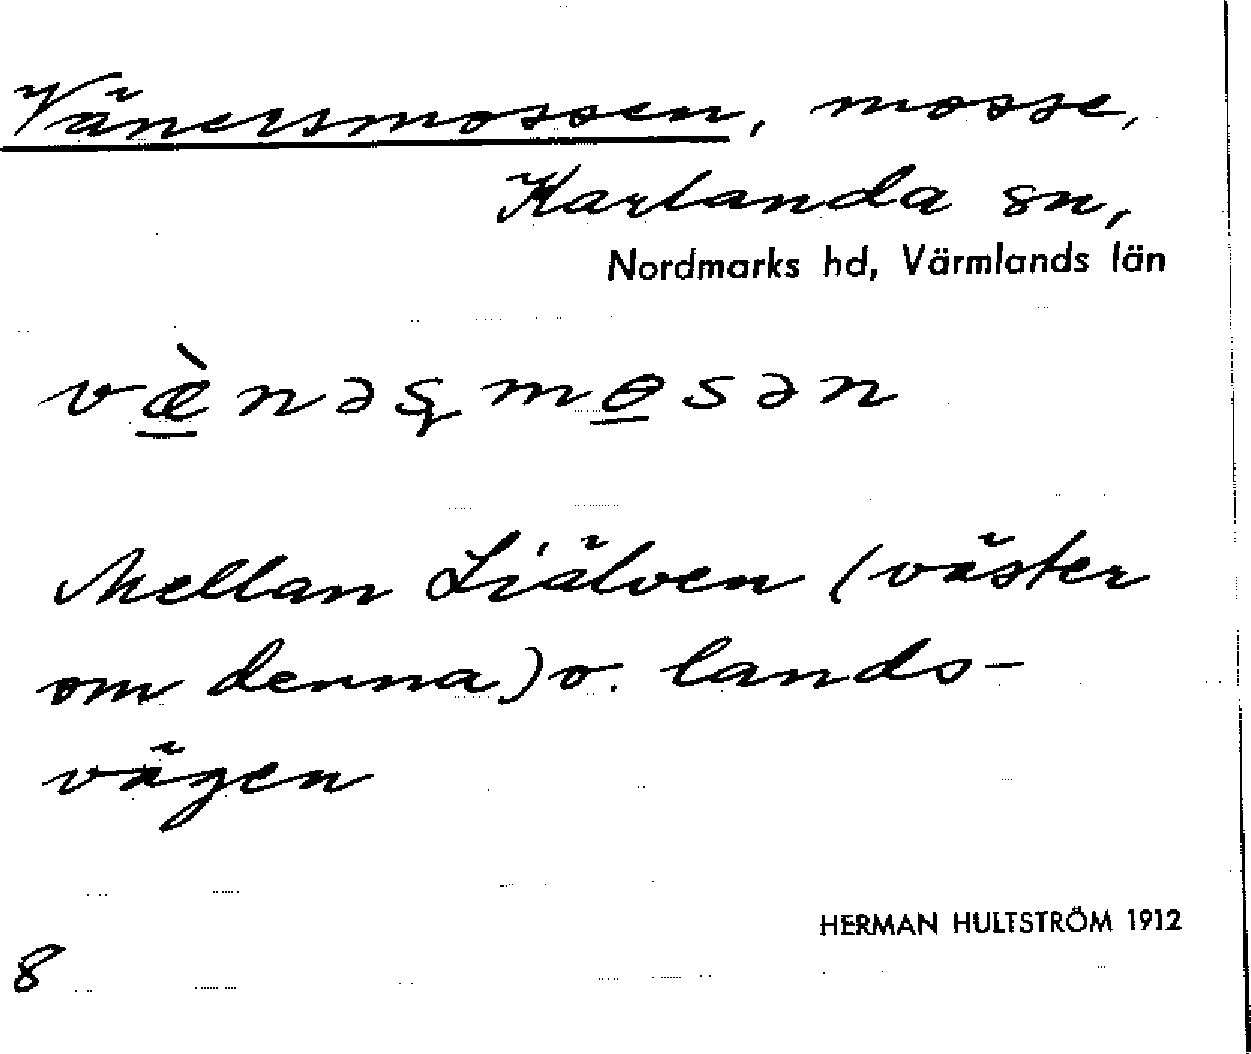 Vänersmossen, mosse,
Karlanda sn,
Nordmarks hd, Värmlands län
væ̀nəʂmɵsən
Mellan Liälven (väster
om denna) o. lands-
vägen
HERMAN HULTSTRÖM 1912
8